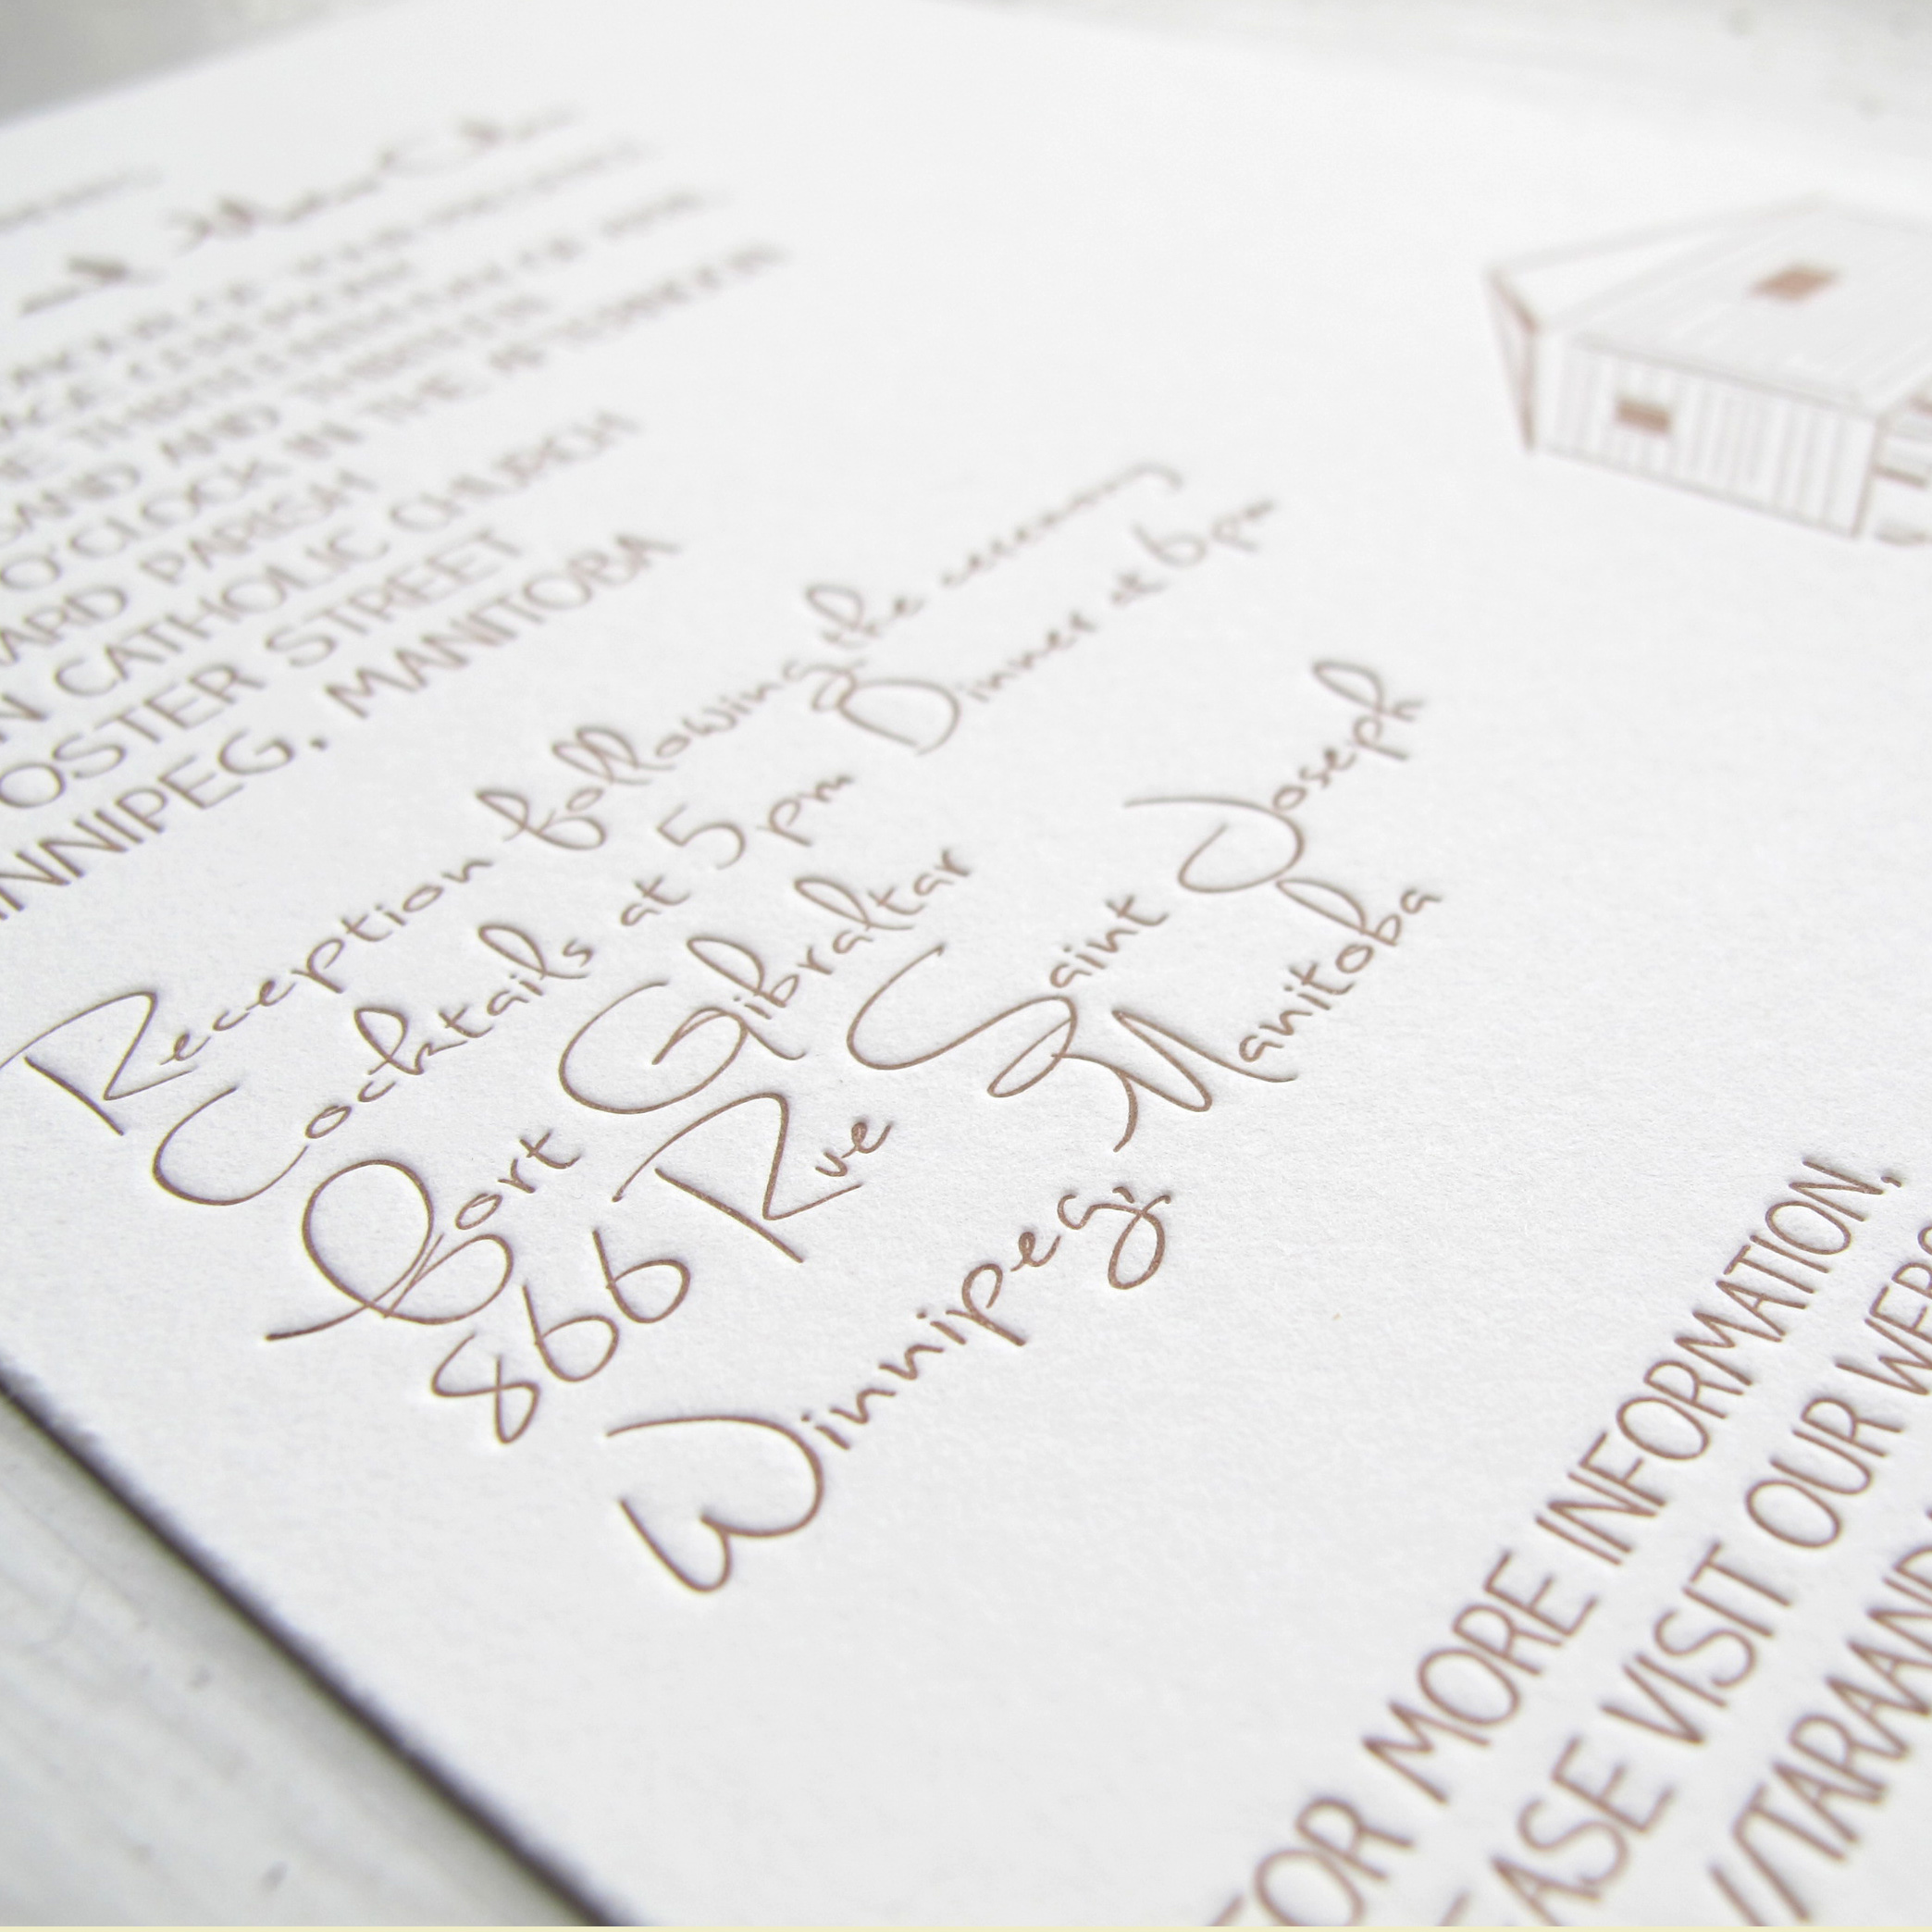 THE
SAND AND THIRTEEN
O'CLOCK IN THE AFTERNOON
ARD PARISH
N CATHOLIC CHURCH
OSTER STREET
NNIPEG, MANITOBA
Reception following the ceremony
Cocktails at 5 pm Dinner at 6 pm
Fort Gibraltar
866 Rue Saint Joseph
Winnipeg, Manitoba
FOR MORE INFORMATION,
EASE VISIT OUR WEBS
//TARAAND